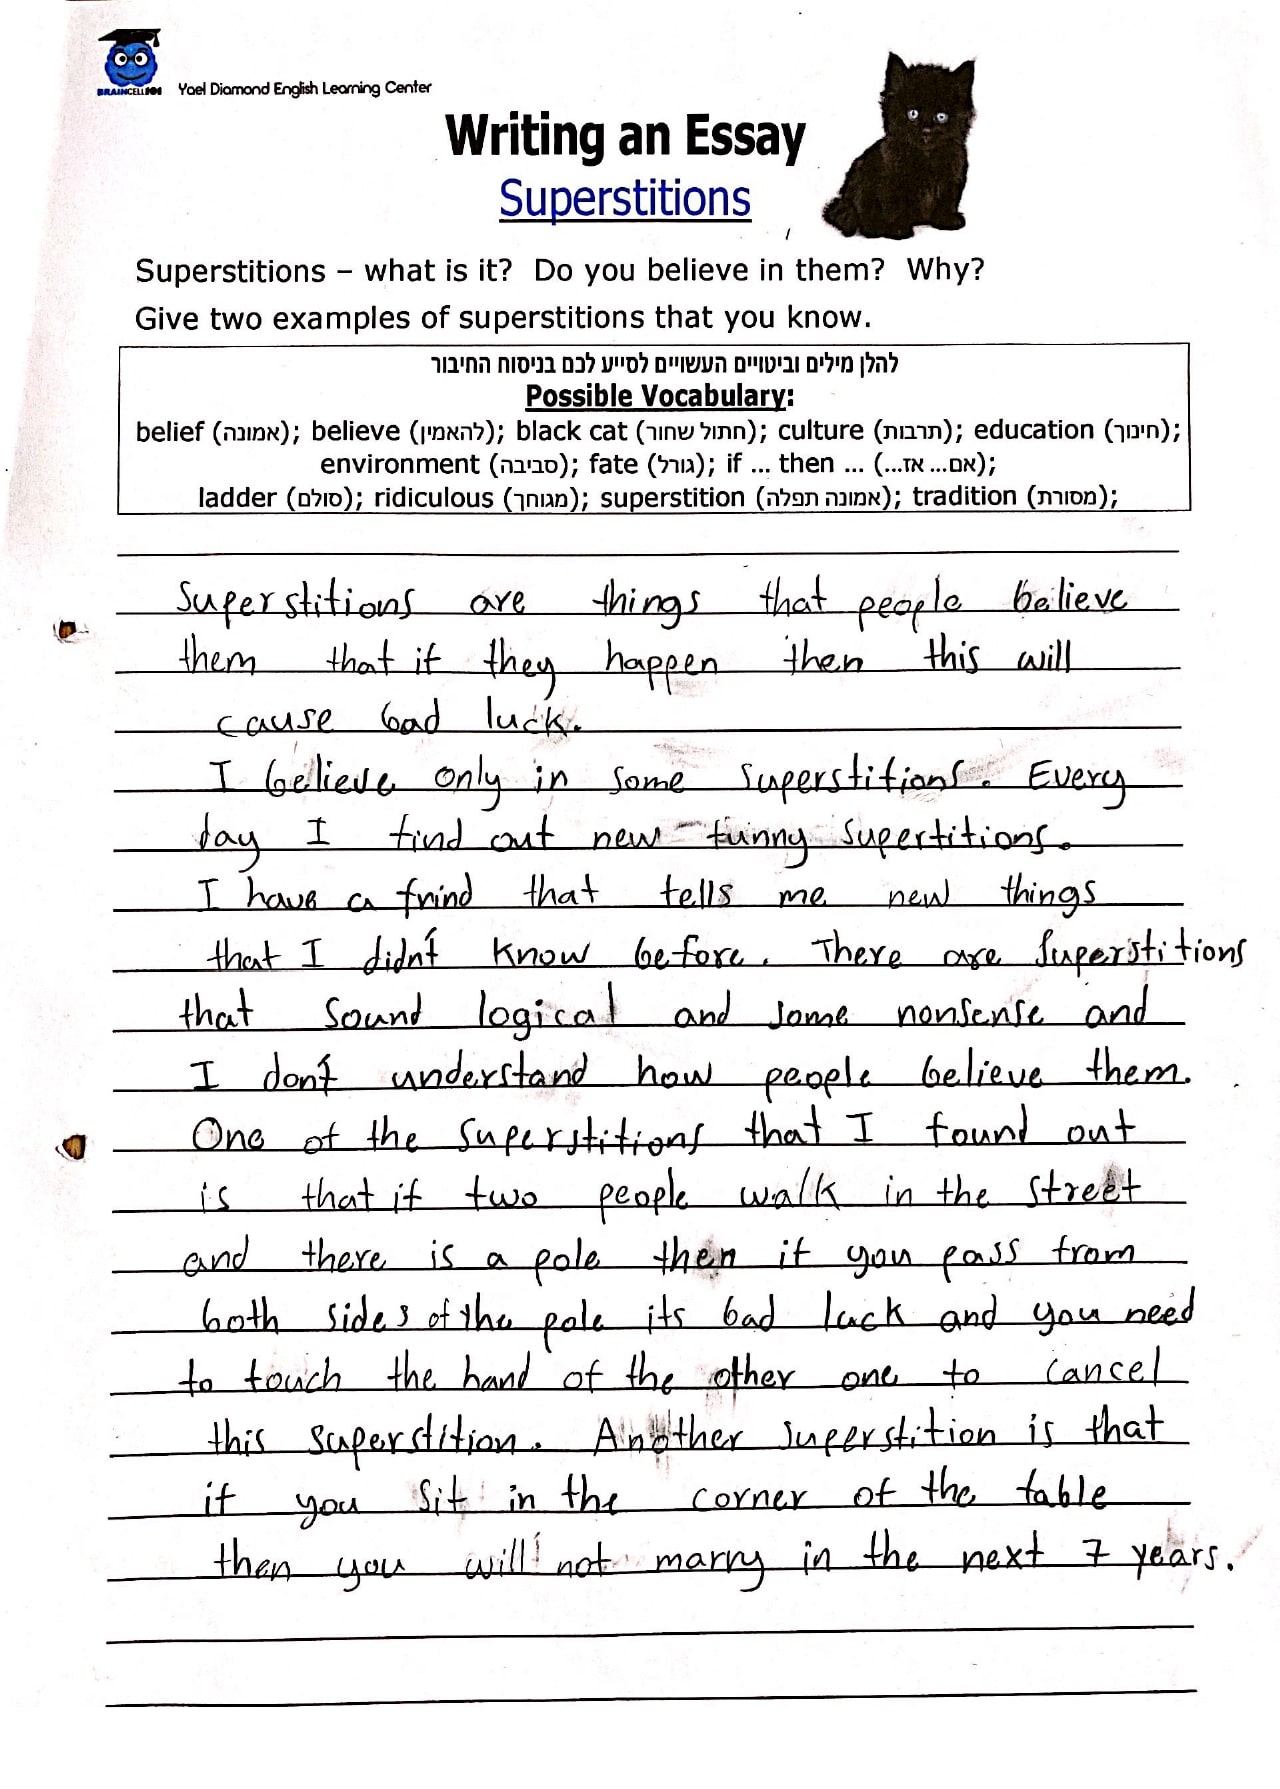 BRAINCELL101
Yael Diamond English Learning Center
Writing an Essay
Superstitions
Superstitions – what is it? Do you believe in them? Why?
Give two examples of superstitions that you know.
להלן מילים וביטויים העשויים לסייע לכם בניסוח החיבור
Possible Vocabulary:
belief (אמונה); believe (להאמין); black cat (חתול שחור); culture (תרבות); education (חינוך);
environment (סביבה); fate (גורל); if ... then ... (אם... אז...);
ladder (סולם); ridiculous (מגוחך); superstition (אמונה תפלה); tradition (מסורת);
Superstitions are things that people believe
them that if they happen then this will
cause bad luck.
I believe only in some superstitions. Every
day I find out new funny supertitions.
I have a frind that tells me new things
that I didn't know before. There are superstitions
that sound logical and some nonsense and
I don't understand how people believe them.
One of the superstitions that I found out
is that if two people walk in the street
and there is a pole then if you pass from
both sides of the pole its bad luck and you need
to touch the hand of the other one to cancel
this superstition. Another superstition is that
if you sit in the corner of the table
then you will not marry in the next 7 years.